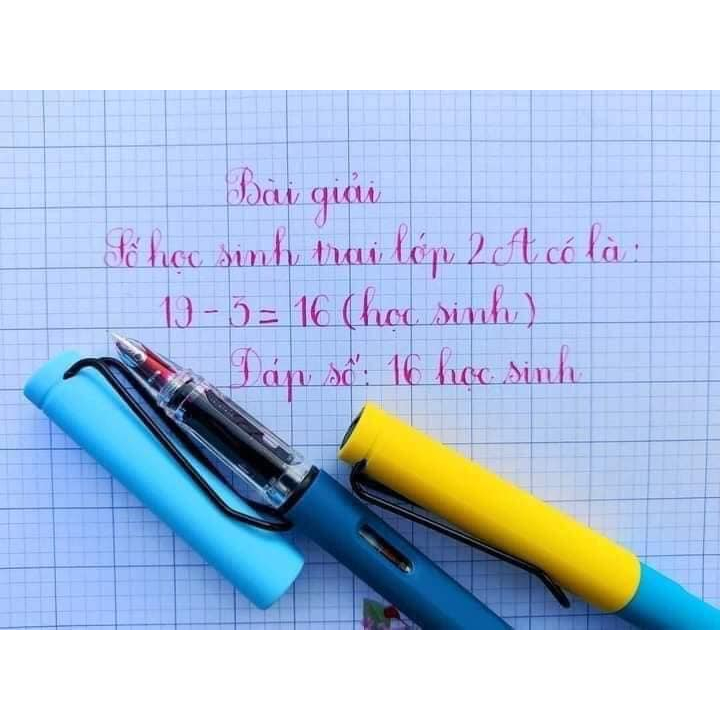 Bài giải
Số học sinh trai lớp 2A có là:
19 - 3 = 16 (học sinh)
Đáp số: 16 học sinh